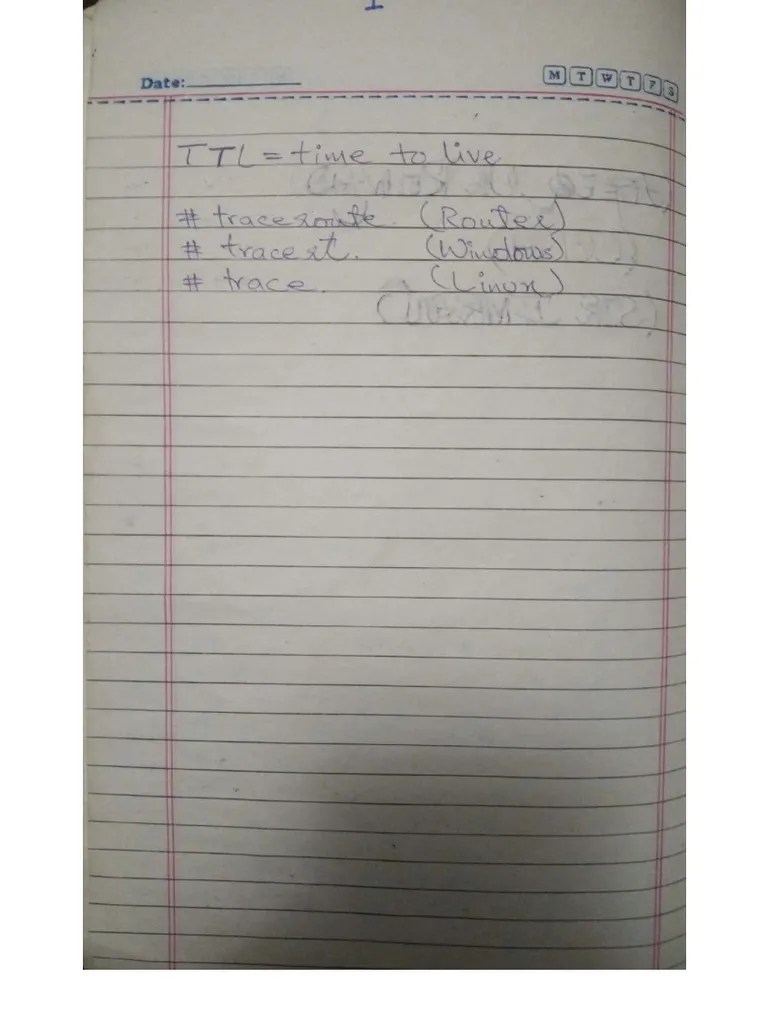 Date:
M T W T F S
TTL = time to live
# traceroute. (Router)
# tracert. (Windows)
# trace. (Linux)